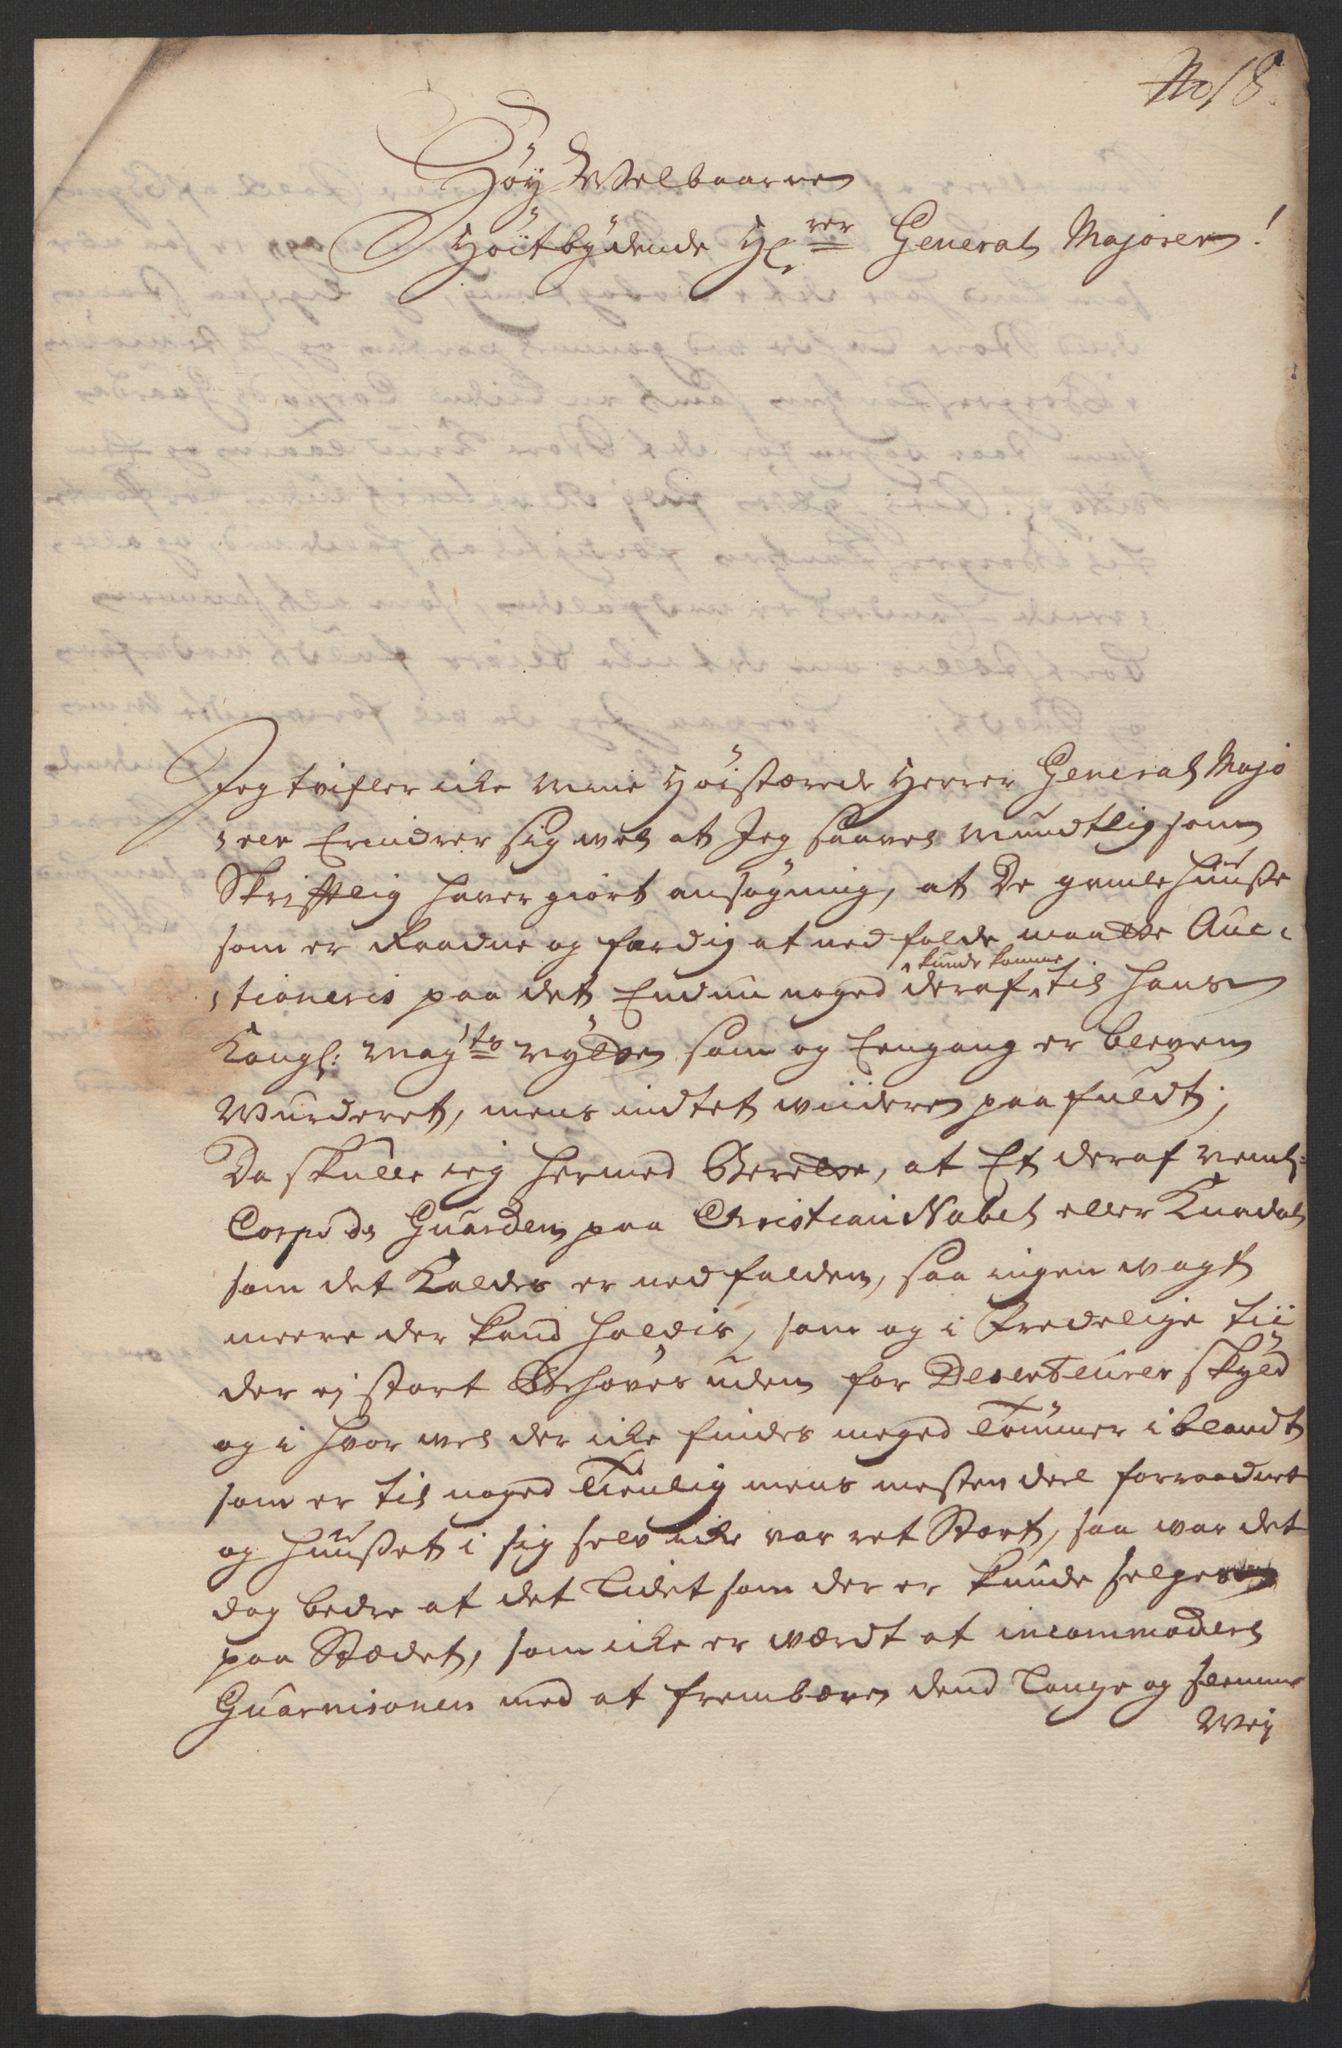 No 18.
Høy Welbaarne
Høitbydende Hr. rer General Majoren!
Jeg tvifler iche mine Høistærede Herrer General Majo
rer Erindrer sig wel at Jeg saavel Mundtlig som
Skrifftlig haver giort ansøgning, at De gamle Huuße
som er Raadne og færdig at nedfalde maatte Auc-
tioneris paa det Endnu noged deraf kunde komme til Hans
Kongl: May:ts nytte som og Eengang er bleven
Wurderet, mens indtet wiidere paa fuldt;
Da skulle ieg hermed Berette, at Et deraf neml:
Corps de Guarden paa Christiani Nabel eller Knadal
som det Kaldes er nedfalden, saa ingen wagt
meere der kand holdis, som og i Fredelige tii
der ej stort Behøves uden for Deserteurer skyld
og i hvor vel der iche findes meged Tømmer iblandt
som er til noged Tienlig mens mesten deel forraadnet
og Huußet i sig selv iche var ret Stort, saa war det
dog bedre at det Lidet som der er kunde selges
paa Stædet, som iche er wærdt at incommodere
Guarnisonen med at frembære dend Lange og slemme
Wej